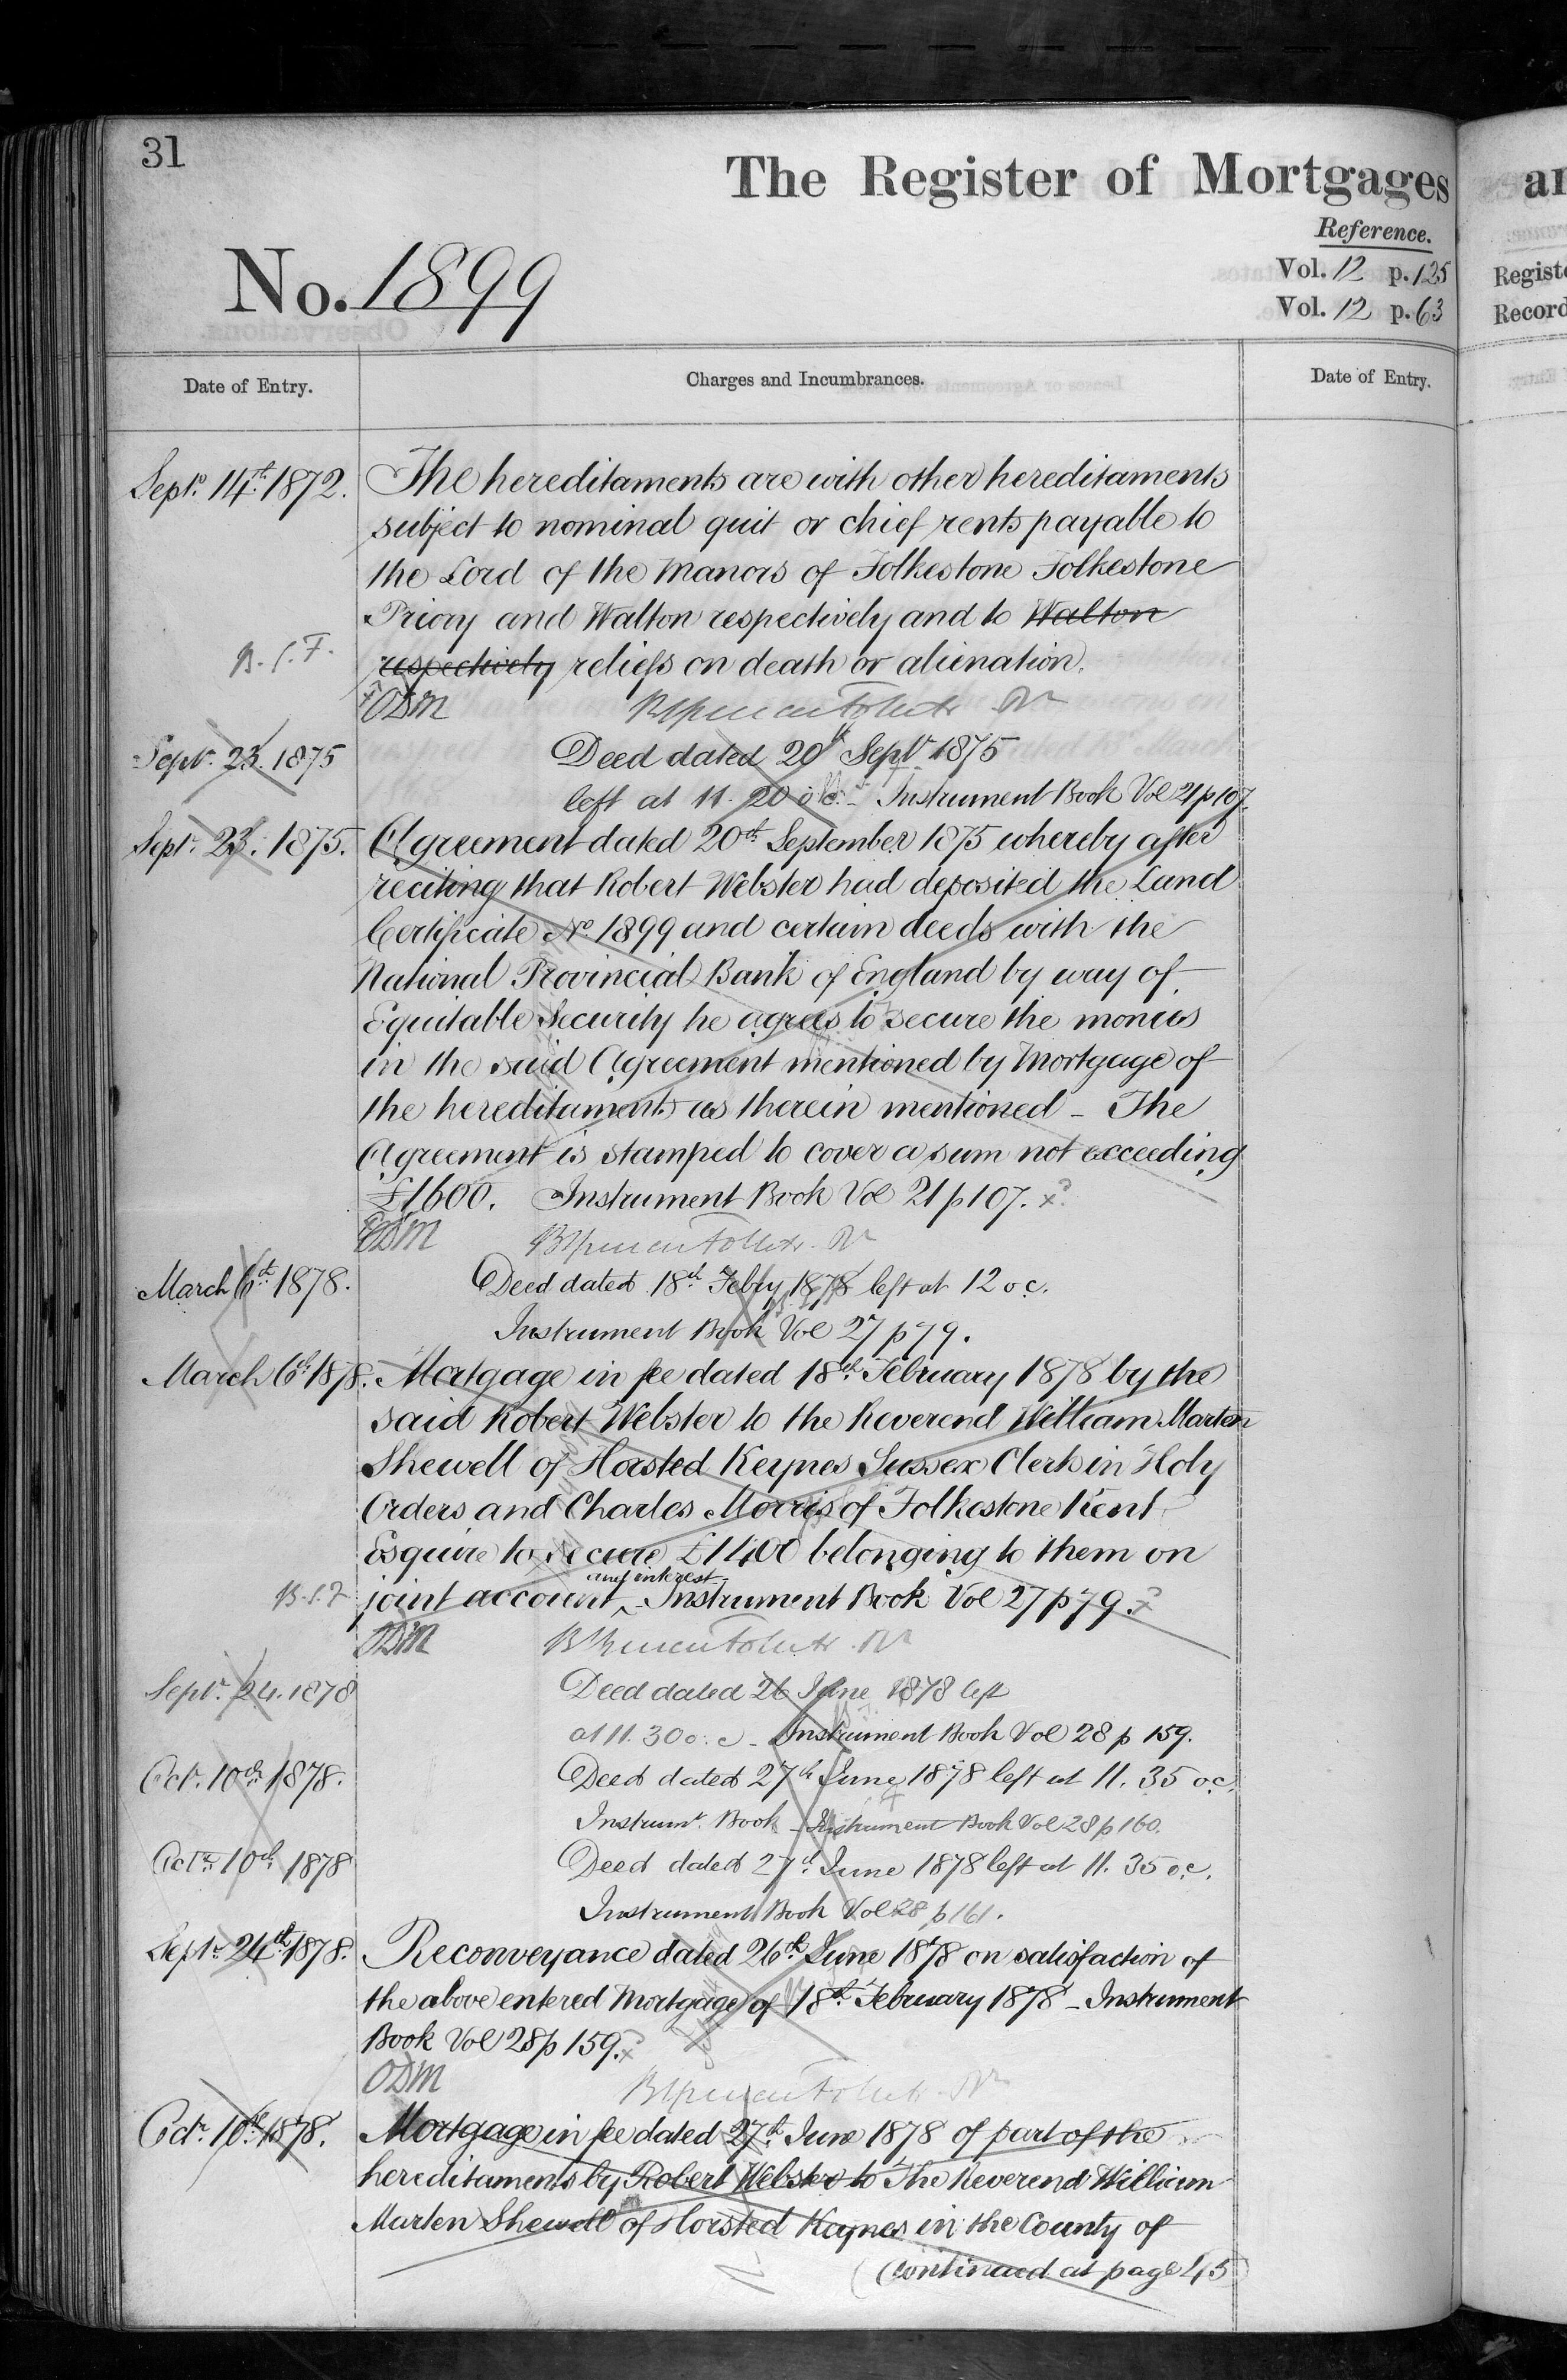 31
The Register of Mortgages
Reference.
No. 1899
Vol. 12 p. 125
Vol. 12 p. 63
Date of Entry.
Charges and Incumbrances.
Date of Entry.
Septr. 14th 1872. The hereditaments are with other hereditaments
subject to nominal quit or chief rents payable to
the Lord of the Manors of Folkestone Folkestone
Priory and Walton respectively and to Walton
respectively reliefs on death or alienation.
ODM
Septr. 23. 1875 Deed dated 20th Septr 1875
left at 11. 20 o'c. - Instrument Book Vol 21 p 107.
Septr. 23. 1875. Agreement dated 20th September 1875 whereby after
reciting that Robert Webster had deposited the Land
Certificate No. 1899 and certain deeds with the
National Provincial Bank of England by way of
Equitable Security he agrees to secure the monies
in the said Agreement mentioned by Mortgage of
the hereditaments as therein mentioned - The
Agreement is stamped to cover a sum not exceeding
£1600. Instrument Book Vol 21 p 107.
ODM
March 6th 1878. Deed dated 18th Feby 1878 left at 12 oc.
Instrument Book Vol 27 p 79.
March 6th 1878. Mortgage in fee dated 18th February 1878 by the
said Robert Webster to the Reverend William Marten
Shewell of Horsted Keynes Sussex Clerk in Holy
Orders and Charles Morris of Folkestone Kent
Esquire to secure £1400 belonging to them on
joint account and interest - Instrument Book Vol 27 p 79.
ODM
Septr. 24. 1878 Deed dated 26 June 1878 left
at 11. 30 o.c - Instrument Book Vol 28 p 159.
Octr. 10th 1878. Deed dated 27th June 1878 left at 11. 35 oc.
Instrumt. Book - Instrument Book Vol 28 p 160.
Octr. 10th 1878 Deed dated 27th June 1878 left at 11. 35 o.c.
Instrument Book Vol 28 p 161.
Septr. 24th 1878. Reconveyance dated 26th June 1878 on satisfaction of
the above entered Mortgage of 18th February 1878 - Instrument
Book Vol 28 p 159.
ODM
Octr. 10th 1878. Mortgage in fee dated 27th June 1878 of part of the
hereditaments by Robert Webster to The Reverend William
Marten Shewell of Horsted Keynes in the County of
(continued at page 45)
Registe
Record